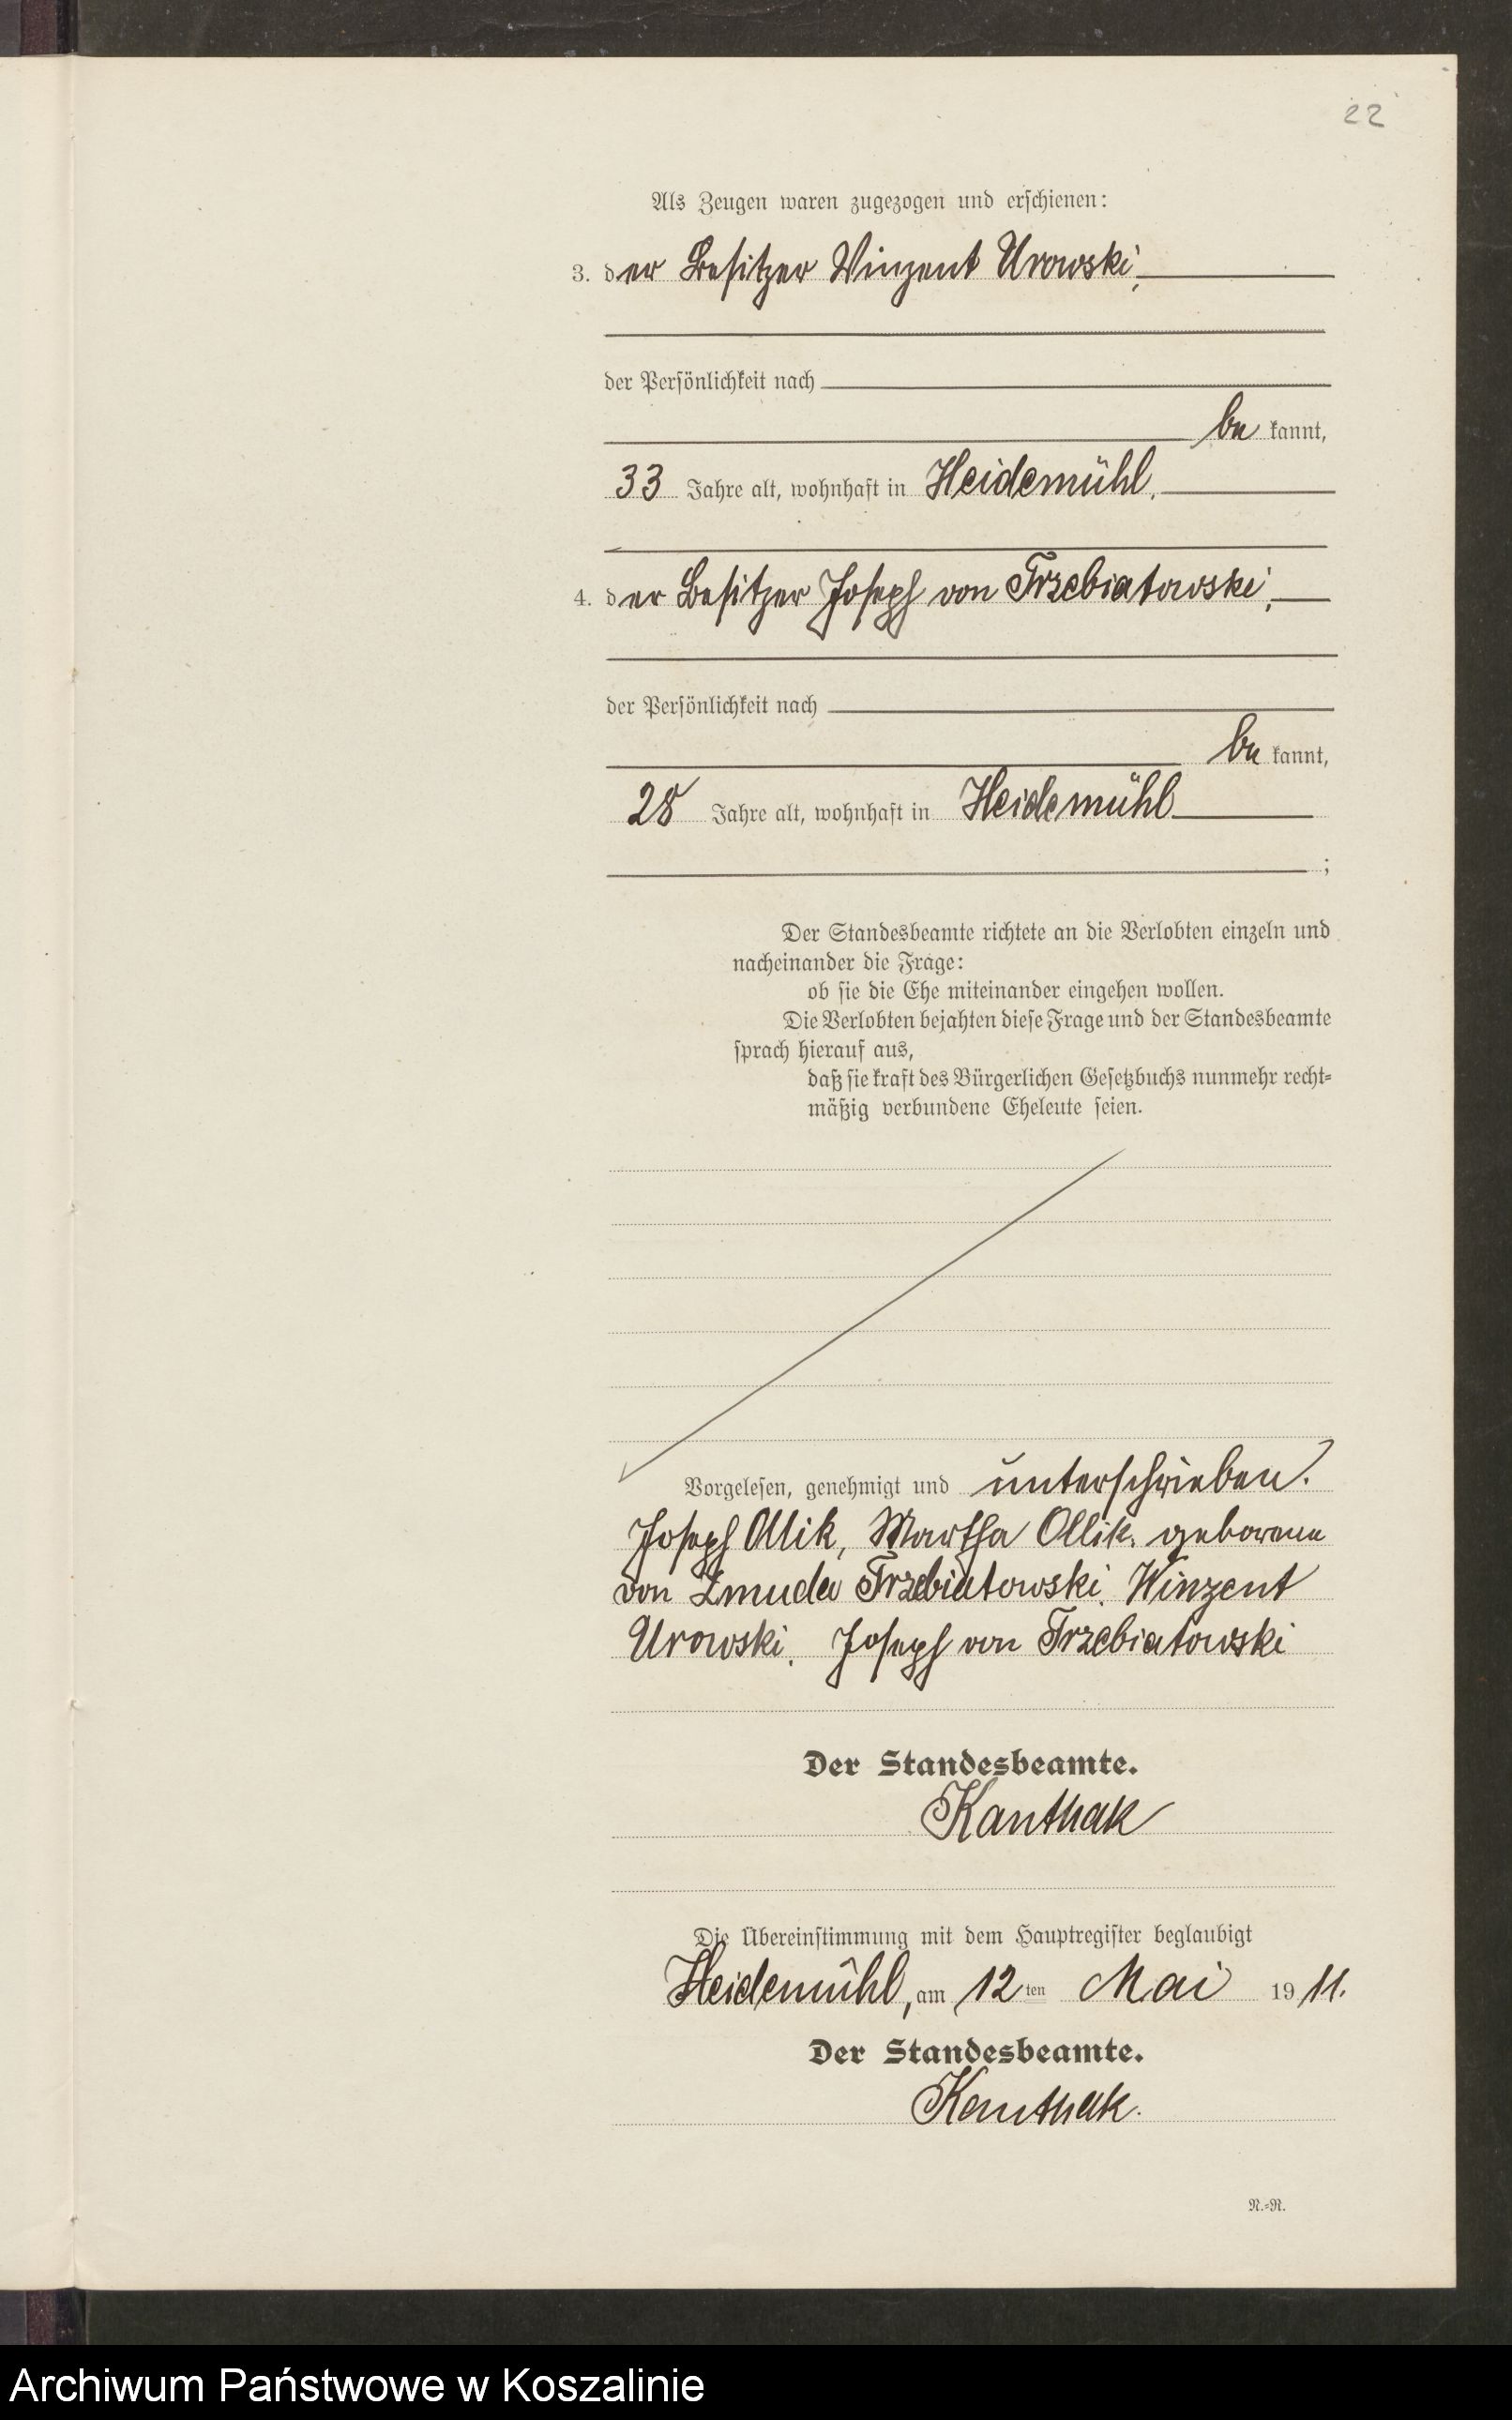 22
Als Zeugen waren zugezogen und erschienen:
3. der Besitzer Vinzent Urowski,
der Persönlichkeit nach
be kannt,
33 Jahre alt, wohnhaft in Heidemühl,
4. der Besitzer Joseph von Trzebiatowski,
der Persönlichkeit nach
be kannt,
28 Jahre alt, wohnhaft in Heidemühl
;
Der Standesbeamte richtete an die Verlobten einzeln und
nacheinander die Frage:
ob sie die Ehe miteinander eingehen wollen.
Die Verlobten bejahten diese Frage und der Standesbeamte
sprach hierauf aus,
daß sie kraft des Bürgerlichen Gesetzbuchs nunmehr recht-
mäßig verbundene Eheleute seien.
Vorgelesen, genehmigt und unterschrieben.
Joseph Ollik, Martha Ollik, geborene
von Zmuda Trzebiatowski. Winzent
Urowski. Joseph von Trzebiatowski
Der Standesbeamte.
Kanthak
Die Übereinstimmung mit dem Hauptregister beglaubigt
Heidemühl, am 12ten Mai 1911.
Der Standesbeamte.
Kanthak.
N.-R.
Archiwum Państwowe w Koszalinie